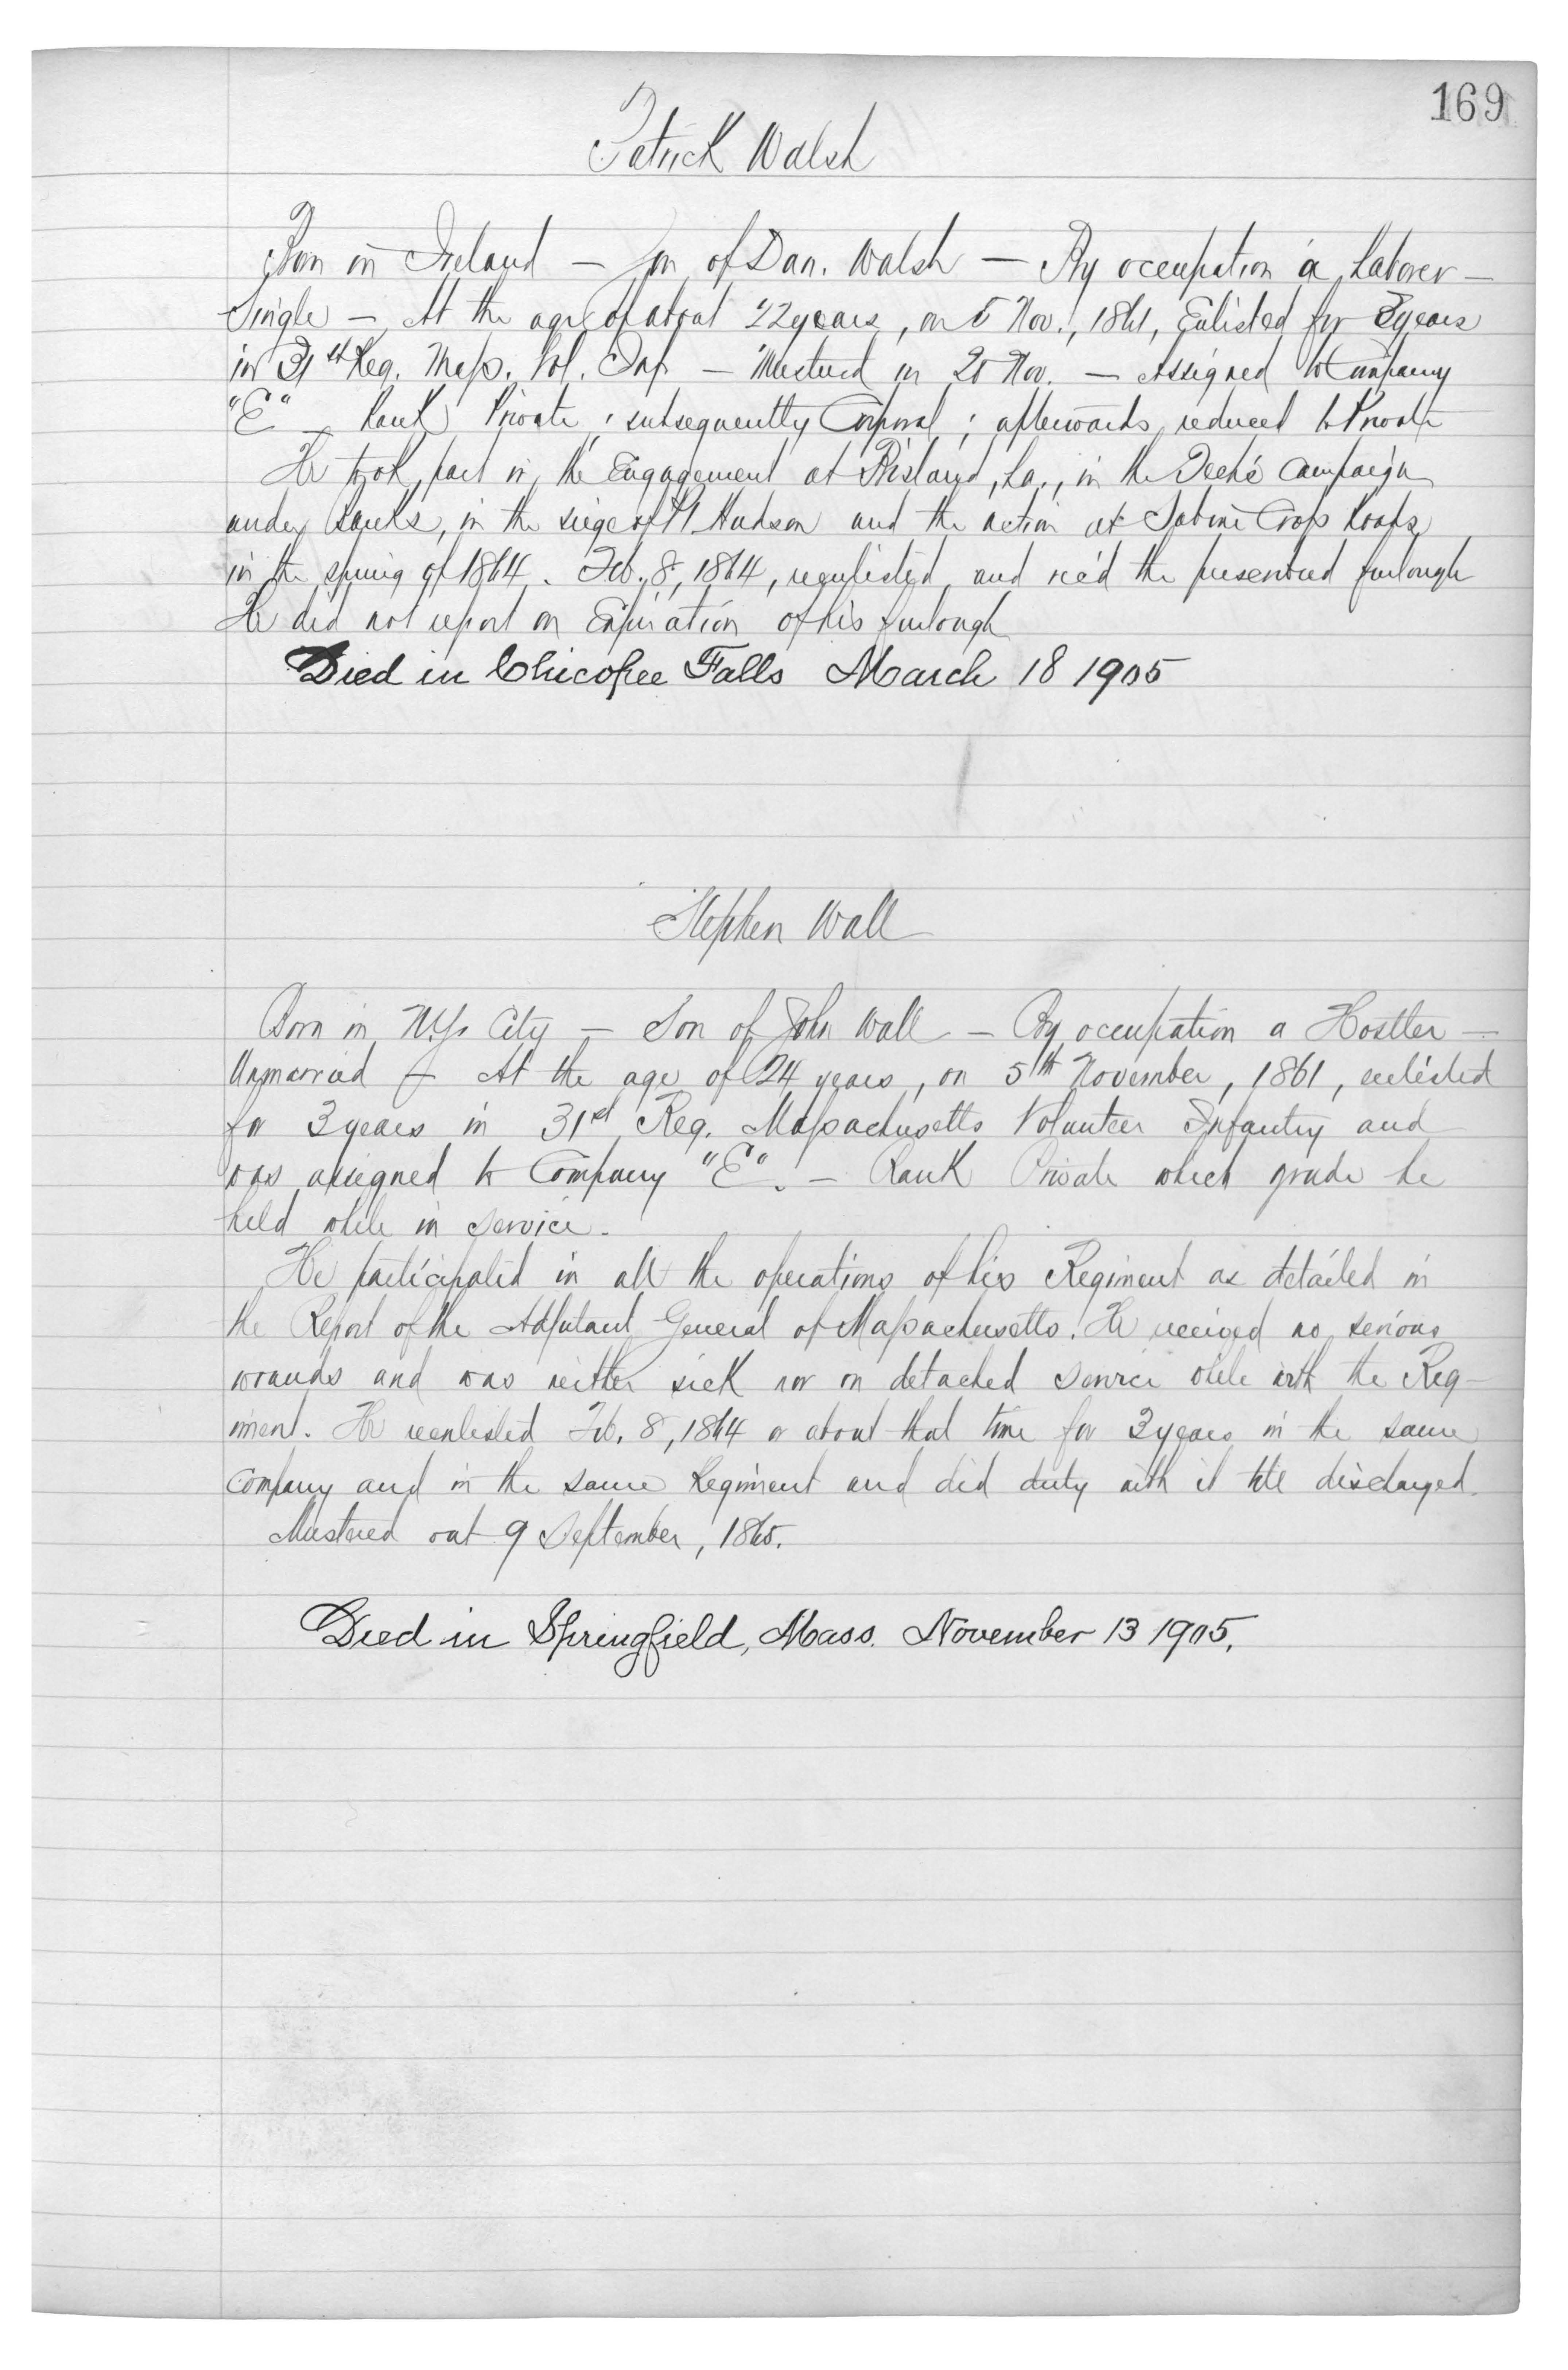 169
Patrick Walsh
Born in Ireland — Son of Dan. Walsh — By occupation a Laborer —
Single — At the age of about 22 years, on 5 Nov., 1861, Enlisted for 3 years
in 31st Reg. Mass. Vol. Inf. — Mustered in 20 Nov. — Assigned to Company
"E" — Rank Private; subsequently Corporal; afterwards reduced to Private
He took part in the Engagement at Bisland, La., in the Teche Campaign
under Banks, in the siege of Pt Hudson and the action at Sabine Cross Roads
in the spring of 1864. Feb. 8, 1864, reenlisted and rec'd the furlough
He did not report on Expiration of his furlough
Died in Chicopee Falls March 18 1905
Stephen Wall
Born in N.Y. City — Son of John Wall — By occupation a Hostler —
Unmarried — At the age of 24 years, on 5th November, 1861, enlisted
for 3 years in 31st Reg. Massachusetts Volunteer Infantry and
was assigned to Company "E". — Rank Private which grade he
held while in service.
He participated in all the operations of his Regiment as detailed in
the Report of the Adjutant General of Massachusetts. He received no serious
wounds and was neither sick nor on detached service while with the Reg-
iment. He reenlisted Feb. 8, 1864 or about that time for 3 years in the same
Company and in the same Regiment and did duty with it till discharged.
Mustered out 9 September, 1865.
Died in Springfield, Mass. November 13 1905.